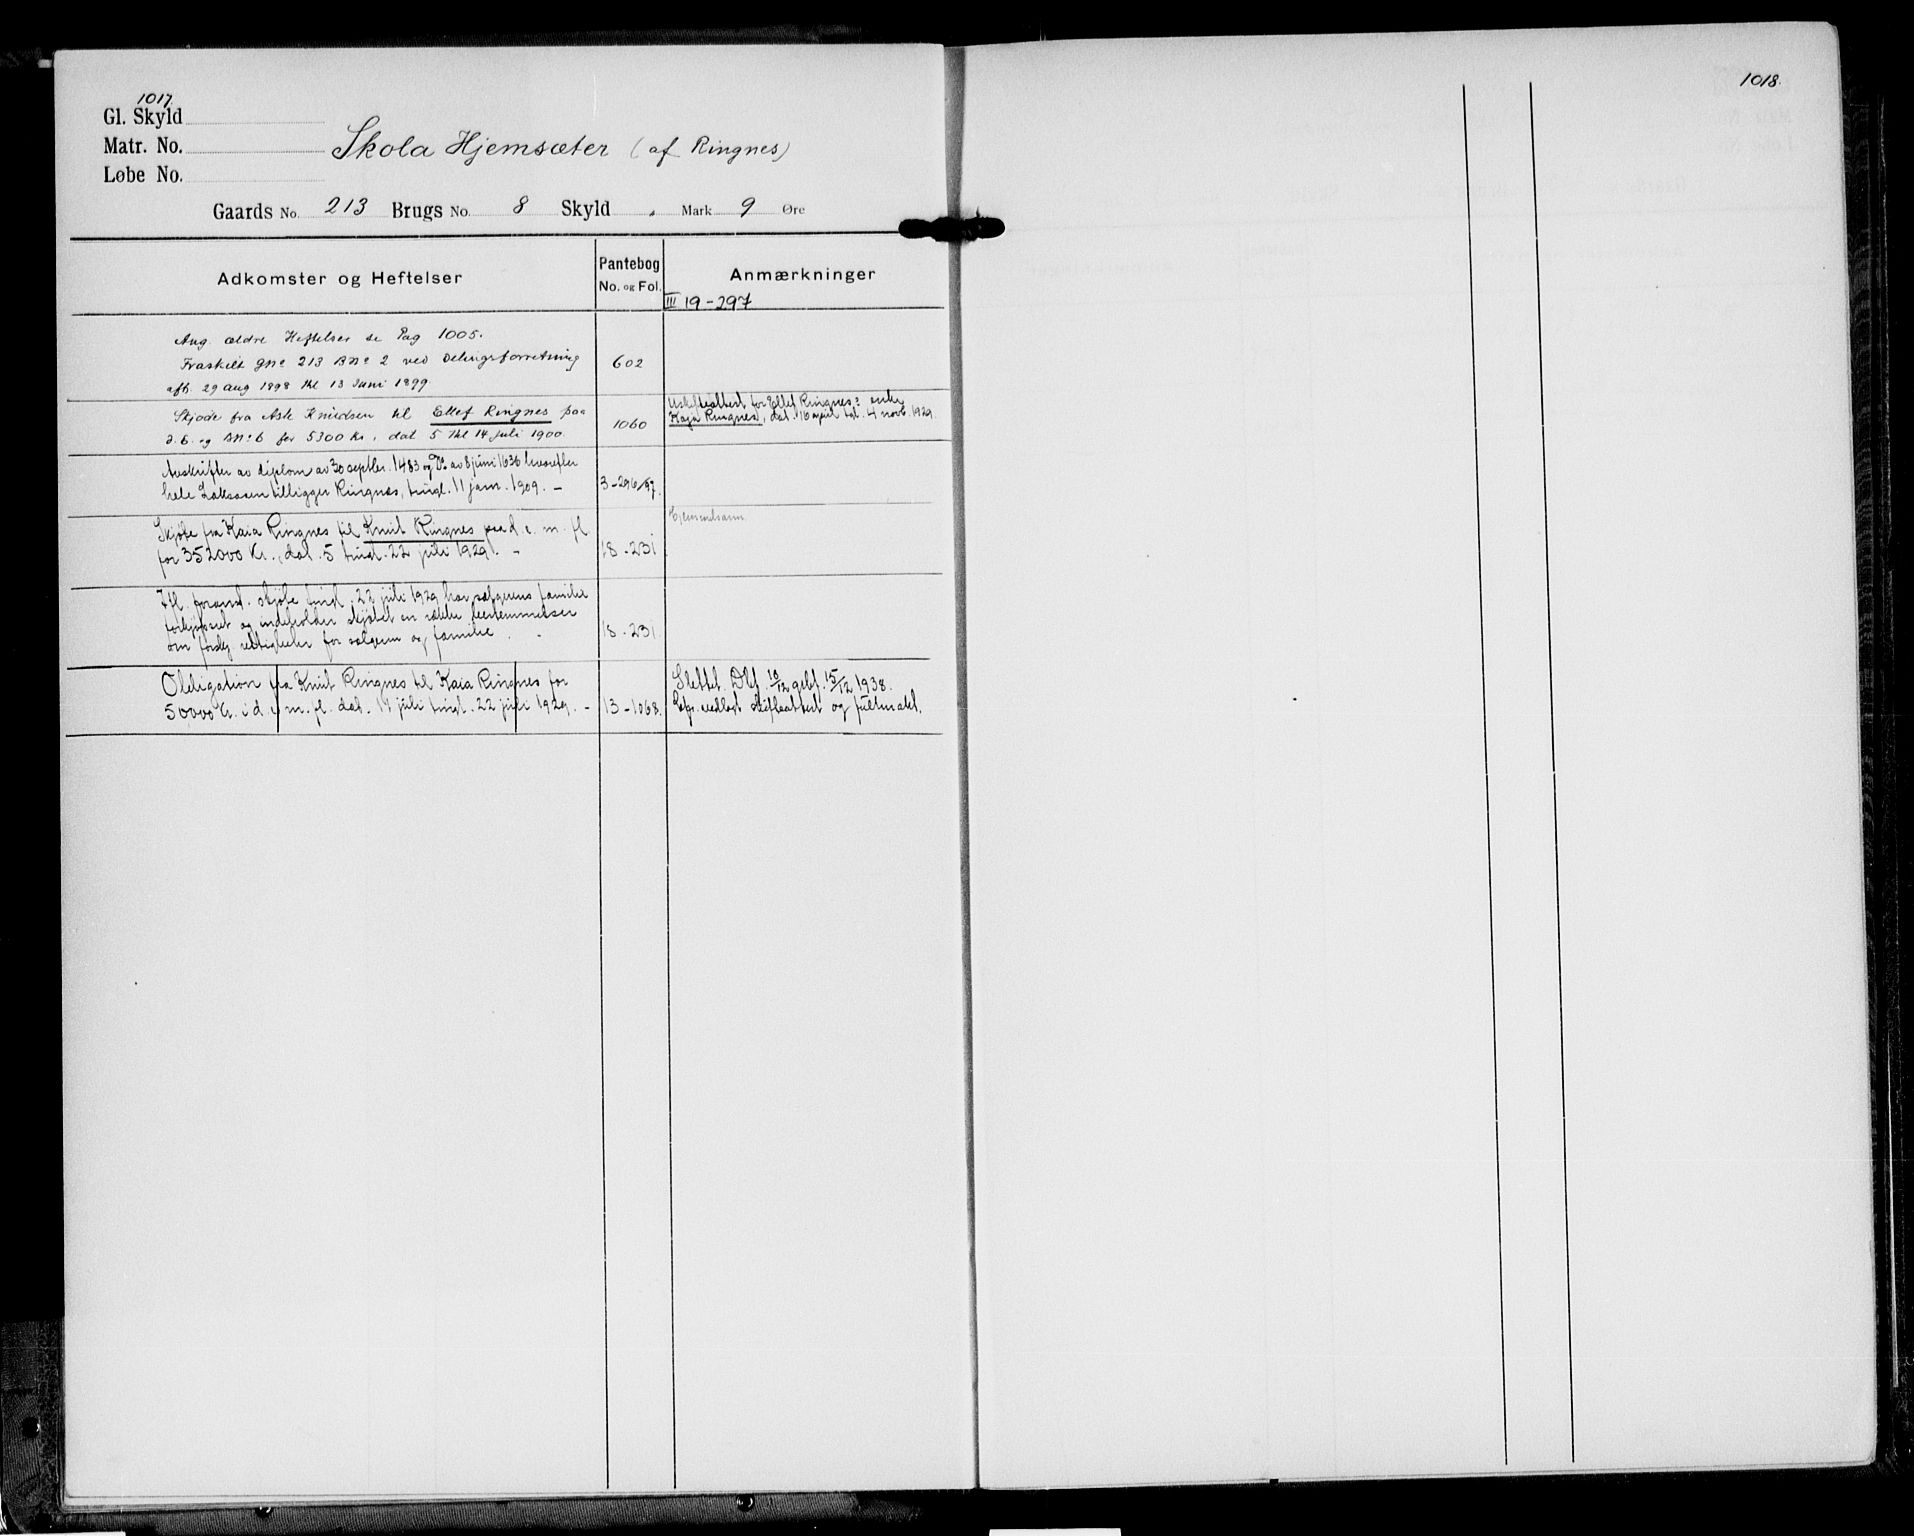 1017.
Gl. Skyld
Matr. No.
Løbe No.
Skola Hjemsæter (af Ringnes)
Gaards No. 213 Brugs No. 8 Skyld . Mark 9 Øre
Adkomster og Heftelser
Pantebog
No. og Fol.
Anmærkninger
III 19-297
Ang. ældre Heftelser se Pag 1005.
Fraskilt GNo 213 BNo 2 ved Delingsforretning
afh. 29 Aug 1898 thl 13 Juni 1899
602
Skjøde fra Asle Knudsen til Ellef Ringnes paa
d. E. og BNo 6 for 5300 Kr, dat 5 thl 14 juli 1900.
1060
Uskifteattest for Ellef Ringnes: enke
Kaja Ringnes, dat. 16 april tgl. 4 novb. 1929.
Avskrifter av diplom av 30 septbr. 1483 og Do av 8 juni 1636 hvorefter
hele tilligger Ringnes, tingl. 11 jan. 1909. -
3-296/97.
Skjøte fra Kaia Ringnes til Knut Ringnes paa d. e. m. fl.
for 352000 Kr., dat. 5 tingl. 22 juli 1929. -
18-231
Ifl. foranst. skjøte tingl. 22 juli 1929 har sælgerens familie
forkjøpsret og indeholder skjøtet en række bestemmelser
om forskj. rettigheder for sælgeren og familie. -
18-231.
Obligation fra Knut Ringnes til Kaia Ringnes for
50,000 kr. i d. e. m. fl. dat. 17 juli tingl. 22 juli 1929. -
13-1068.
Slettet. Dbf. 10/12 1938.
15/12 vedlagt skifteattest og fullmakt.
1018.